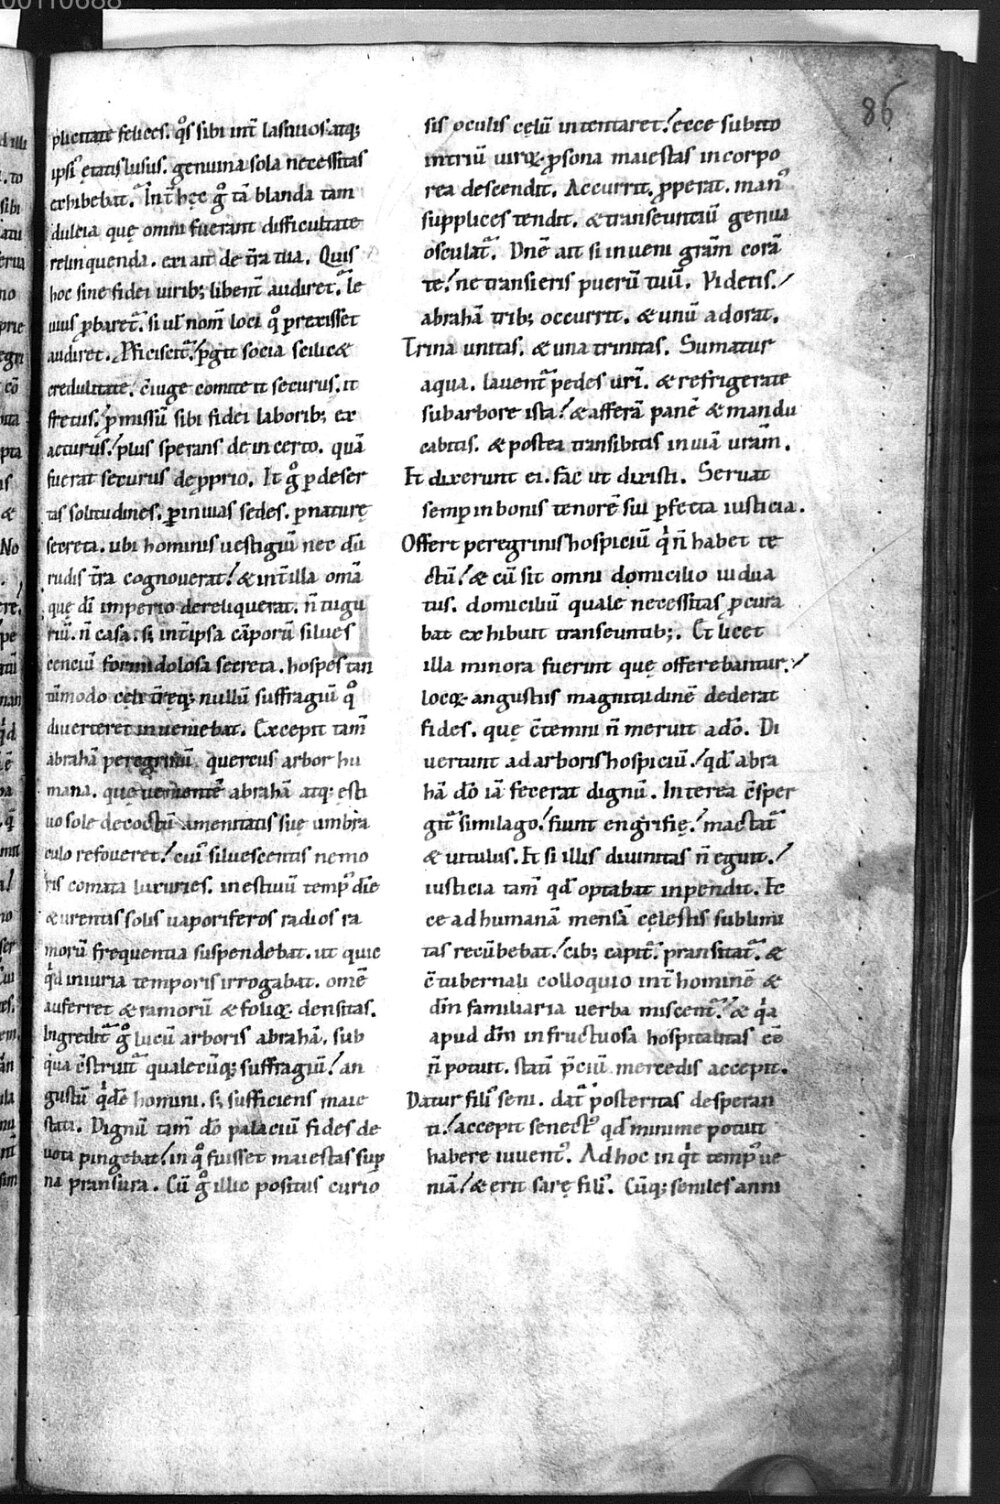 86
plicitate felices. q̊s sibi int̄ lasciuos atq;
ipsi᾽ ętatis lusus. genuina sola necessitas
exhibebat. Int̄ hęc g̊ tā blanda tam
dulcia quę omni fuerant difficultate
relinquenda. exi ait de t̄ra tua. Quis
hoc sine fidei uirib; libent̄ audiret. le
uius ꝓbaret̄. si ul̄ nom̄ loci q̊ ꝑrexisset
audiret. Ꝓficiscit̄! ꝑgit socia scilic&
credulitate. c̄iuge comite it securus. it
fretus. ꝓmissū sibi fidei laborib; ex
acturus! plus sperans de incerto. quā
fuerat securus de ꝓprio. It g̊ ꝑ deser
tas solitudines. ꝑ inuias sedes. ꝑ naturę
secreta. ubi hominis uestigiū nec dū
rudis t̄ra cognouerat! & int̄ illa om̄a
que dī imperio dereliquerat. n̄ tugu
riū. n̄ casa. s; int̄ ipsa cāporū silues
cenciū formidolosa secreta. hospes tan
tūmodo celi t̄req; nullū suffragiū q̊
diuerteret inueniebat. Excepit tam̄
abrahā peregrinū quercus arbor hu
mana. que uenientē abrahā atq; esti
uo sole decoctū amenitatis suę umbra
culo refoueret! cui᾽ siluescentis nemo
ris comata luxuries. in estiuū temp᾽ die
& urentis solis uaporiferos radios ra
morū frequentia suspendebat. ut quic
qd iniuria temporis irrogabat. om̄e
auferret & ramorū & folioꝝ densitas.
Ingredit̄ g̊ lucū arboris abrahā. sub
qua c̄struit qualecūq; suffragiū! an
gustū qdē homini. s; sufficiens maie
stati. Dignū tam̄ dō palaciū fides de
uota pingebat! in q̊ fuisset maiestas sup
na pransura. Cū g̊ illic positus curio
sis oculis celū intentaret! ecce subito
in triū uiroꝝ ꝑsona maiestas incorpo
rea descendit. Accurrit. ꝓperat. man᾽
supplices tendit. & transeuntiū genua
osculat̄. Dn̄e ait si inueni gr̄am corā
te! ne transieris puerū tuū. Videtis!
abrahā trib; occurrit. & unū adorat.
Trina unitas. & una trinitas. Sumatur
aqua. lauent̄ pedes ur̄i. & refrigerate
sub arbore ista! & afferā panē & mandu
cabitis. & postea transibitis in uiā ur̄am.
Et dixerunt ei. fac ut dixisti. Seruat
semp in bonis tenorē sui ꝑfecta iusticia.
Offert peregrinis hospiciū q n̄ habet te
ctū! & cū sit omni domicilio uidua
tus. domiciliū quale necessitas ꝓcura
bat exhibuit transeuntib;. Et licet
illa minora fuerint que offerebantur!
locoꝝ angustiis magnitudinē dederat
fides. quę c̄temni n̄ meruit a dō. Di
uertunt ad arboris hospiciū! qd̄ abra
hā dō iā fecerat dignū. Interea c̄sper
git̄ similago! fiunt engrifię! mactat̄
& uitulus. Et si illis diuinitas n̄ eguit!
iusticia tam̄ qd̄ optabat inpendit. Ec
ce ad humanā mensā celestis sublimi
tas recūbebat! cib; capit̄. pransitat̄. &
c̄tubernali colloquio int̄ hominē &
dm̄ familiaria uerba miscent̄! & qa
apud dm̄ infructuosa hospitalitas eē
n̄ potuit. stati p̄ciū mercedis accepit.
Datur fili᾽ seni. dat̄ posteritas desperan
ti! accepit senect᾽ qd̄ minime potuit
habere iuuent᾽. Ad hoc inqt temp᾽ ue
niā! & erit sarę fili᾽. Cūq; seniles anni